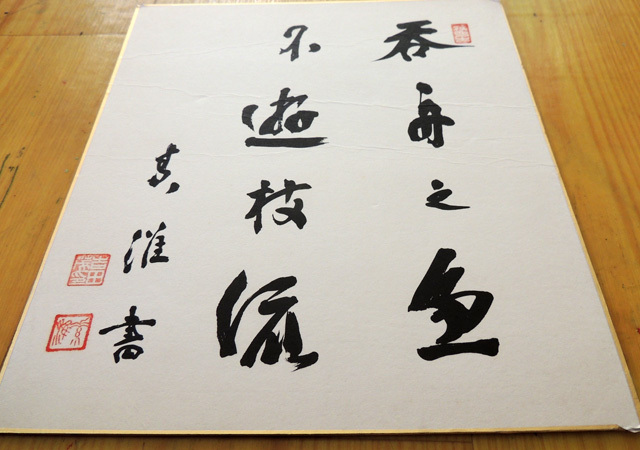 呑舟之魚
不遊枝流
真淮書